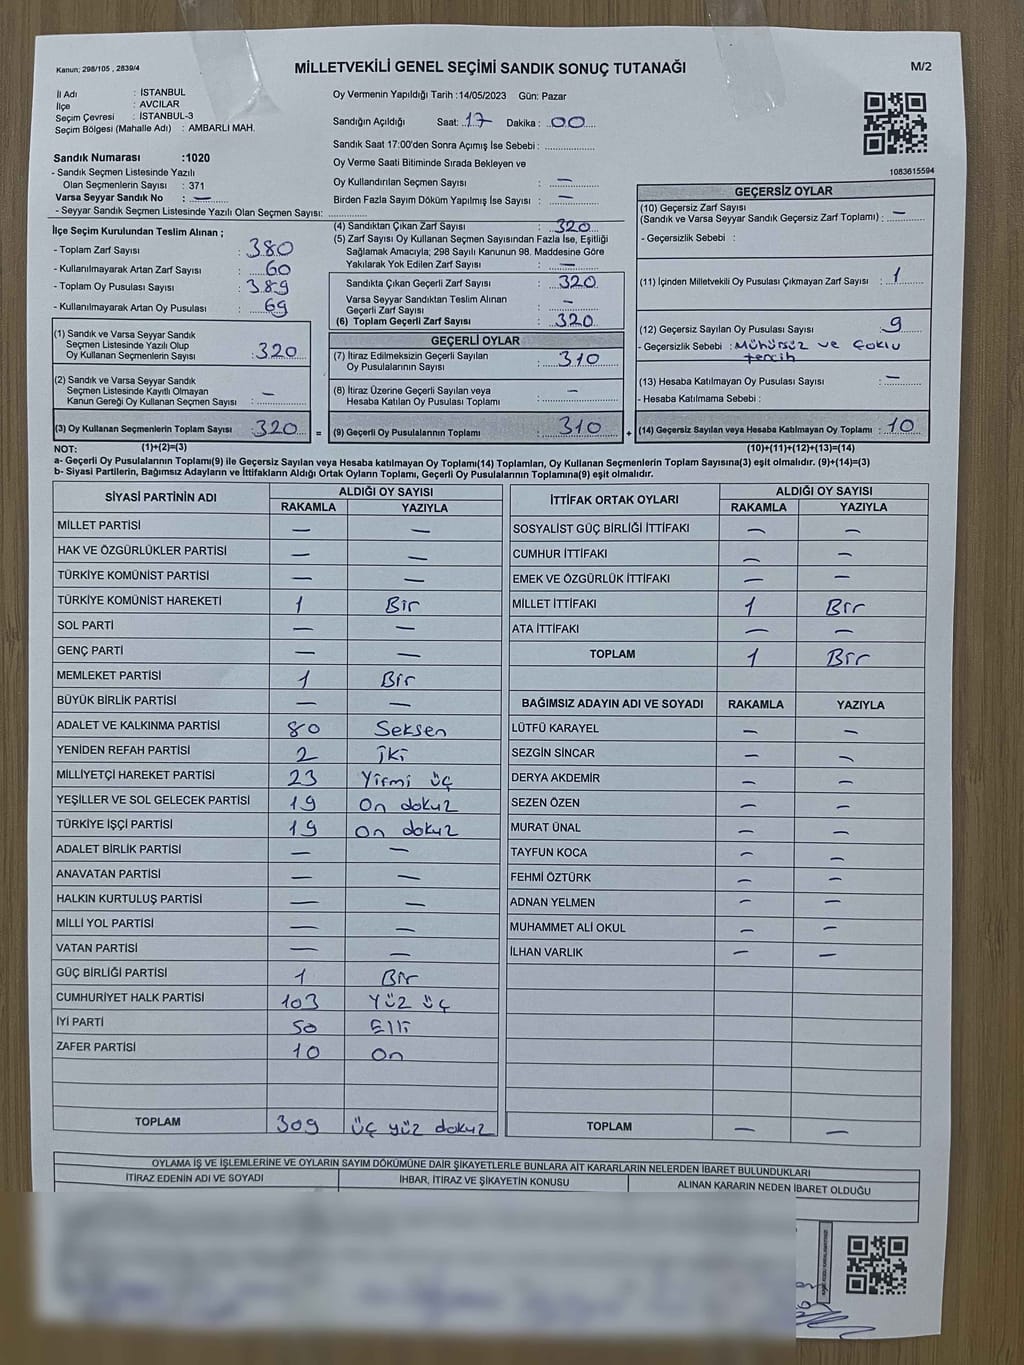 Kanun; 298/105 , 2839/4
MİLLETVEKİLİ GENEL SEÇİMİ SANDIK SONUÇ TUTANAĞI
M/2
İl Adı : İSTANBUL
İlçe : AVCILAR
Seçim Çevresi : İSTANBUL-3
Seçim Bölgesi (Mahalle Adı) : AMBARLI MAH.
Oy Vermenin Yapıldığı Tarih :14/05/2023 Gün: Pazar
Sandığın Açıldığı Saat: 17 Dakika : 00
Sandık Saat 17:00'den Sonra Açımış İse Sebebi :
Sandık Numarası :1020
- Sandık Seçmen Listesinde Yazılı
Olan Seçmenlerin Sayısı : 371
Varsa Seyyar Sandık No : —
- Seyyar Sandık Seçmen Listesinde Yazılı Olan Seçmen Sayısı:
Oy Verme Saati Bitiminde Sırada Bekleyen ve
Oy Kullandırılan Seçmen Sayısı : —
Birden Fazla Sayım Döküm Yapılmış İse Sayısı : —
1083615594
İlçe Seçim Kurulundan Teslim Alınan ;
- Toplam Zarf Sayısı : 380
- Kullanılmayarak Artan Zarf Sayısı : 60
- Toplam Oy Pusulası Sayısı : 389
- Kullanılmayarak Artan Oy Pusulası : 69
(1) Sandık ve Varsa Seyyar Sandık
Seçmen Listesinde Yazılı Olup
Oy Kullanan Seçmenlerin Sayısı : 320
(2) Sandık ve Varsa Seyyar Sandık
Seçmen Listesinde Kayıtlı Olmayan
Kanun Gereği Oy Kullanan Seçmen Sayısı : —
(3) Oy Kullanan Seçmenlerin Toplam Sayısı : 320 =
(4) Sandıktan Çıkan Zarf Sayısı : 320
(5) Zarf Sayısı Oy Kullanan Seçmen Sayısından Fazla İse, Eşitliği
Sağlamak Amacıyla; 298 Sayılı Kanunun 98. Maddesine Göre
Yakılarak Yok Edilen Zarf Sayısı : —
Sandıkta Çıkan Geçerli Zarf Sayısı : 320
Varsa Seyyar Sandıktan Teslim Alınan
Geçerli Zarf Sayısı : —
(6) Toplam Geçerli Zarf Sayısı : 320
GEÇERLİ OYLAR
(7) İtiraz Edilmeksizin Geçerli Sayılan
Oy Pusulalarının Sayısı : 310
(8) İtiraz Üzerine Geçerli Sayılan veya
Hesaba Katılan Oy Pusulası Toplamı : —
(9) Geçerli Oy Pusulalarının Toplamı : 310 +
GEÇERSİZ OYLAR
(10) Geçersiz Zarf Sayısı
(Sandık ve Varsa Seyyar Sandık Geçersiz Zarf Toplamı) : —
- Geçersizlik Sebebi :
(11) İçinden Milletvekili Oy Pusulası Çıkmayan Zarf Sayısı : 1
(12) Geçersiz Sayılan Oy Pusulası Sayısı : 9
- Geçersizlik Sebebi : Mühürsüz ve çoklu
tercih
(13) Hesaba Katılmayan Oy Pusulası Sayısı : —
- Hesaba Katılmama Sebebi :
(14) Geçersiz Sayılan veya Hesaba Katılmayan Oy Toplamı : 10
NOT: (1)+(2)=(3) (10)+(11)+(12)+(13)=(14)
a- Geçerli Oy Pusulalarının Toplamı(9) ile Geçersiz Sayılan veya Hesaba katılmayan Oy Toplamı(14) Toplamları, Oy Kullanan Seçmenlerin Toplam Sayısına(3) eşit olmalıdır. (9)+(14)=(3)
b- Siyasi Partilerin, Bağımsız Adayların ve İttifakların Aldığı Ortak Oyların Toplamı, Geçerli Oy Pusulalarının Toplamına(9) eşit olmalıdır.
SİYASİ PARTİNİN ADI ALDIĞI OY SAYISI
RAKAMLA YAZIYLA
MİLLET PARTİSİ — —
HAK VE ÖZGÜRLÜKLER PARTİSİ — —
TÜRKİYE KOMÜNİST PARTİSİ — —
TÜRKİYE KOMÜNİST HAREKETİ 1 Bir
SOL PARTİ — —
GENÇ PARTİ — —
MEMLEKET PARTİSİ 1 Bir
BÜYÜK BİRLİK PARTİSİ — —
ADALET VE KALKINMA PARTİSİ 80 Seksen
YENİDEN REFAH PARTİSİ 2 iki
MİLLİYETÇİ HAREKET PARTİSİ 23 Yirmi üç
YEŞİLLER VE SOL GELECEK PARTİSİ 19 On dokuz
TÜRKİYE İŞÇİ PARTİSİ 19 On dokuz
ADALET BİRLİK PARTİSİ — —
ANAVATAN PARTİSİ — —
HALKIN KURTULUŞ PARTİSİ — —
MİLLİ YOL PARTİSİ — —
VATAN PARTİSİ — —
GÜÇ BİRLİĞİ PARTİSİ 1 Bir
CUMHURİYET HALK PARTİSİ 103 Yüz üç
İYİ PARTİ 50 Elli
ZAFER PARTİSİ 10 On
TOPLAM 309 üç yüz dokuz
İTTİFAK ORTAK OYLARI ALDIĞI OY SAYISI
RAKAMLA YAZIYLA
SOSYALİST GÜÇ BİRLİĞİ İTTİFAKI — —
CUMHUR İTTİFAKI — —
EMEK VE ÖZGÜRLÜK İTTİFAKI — —
MİLLET İTTİFAKI 1 Bir
ATA İTTİFAKI — —
TOPLAM 1 Bir
BAĞIMSIZ ADAYIN ADI VE SOYADI RAKAMLA YAZIYLA
LÜTFÜ KARAYEL — —
SEZGİN SİNCAR — —
DERYA AKDEMİR — —
SEZEN ÖZEN — —
MURAT ÜNAL — —
TAYFUN KOCA — —
FEHMİ ÖZTÜRK — —
ADNAN YELMEN — —
MUHAMMET ALİ OKUL — —
İLHAN VARLIK — —
TOPLAM — —
OYLAMA İŞ VE İŞLEMLERİNE VE OYLARIN SAYIM DÖKÜMÜNE DAİR ŞİKAYETLERLE BUNLARA AİT KARARLARIN NELERDEN İBARET BULUNDUKLARI
İTİRAZ EDENİN ADI VE SOYADI İHBAR, İTİRAZ VE ŞİKAYETİN KONUSU ALINAN KARARIN NEDEN İBARET OLDUĞU